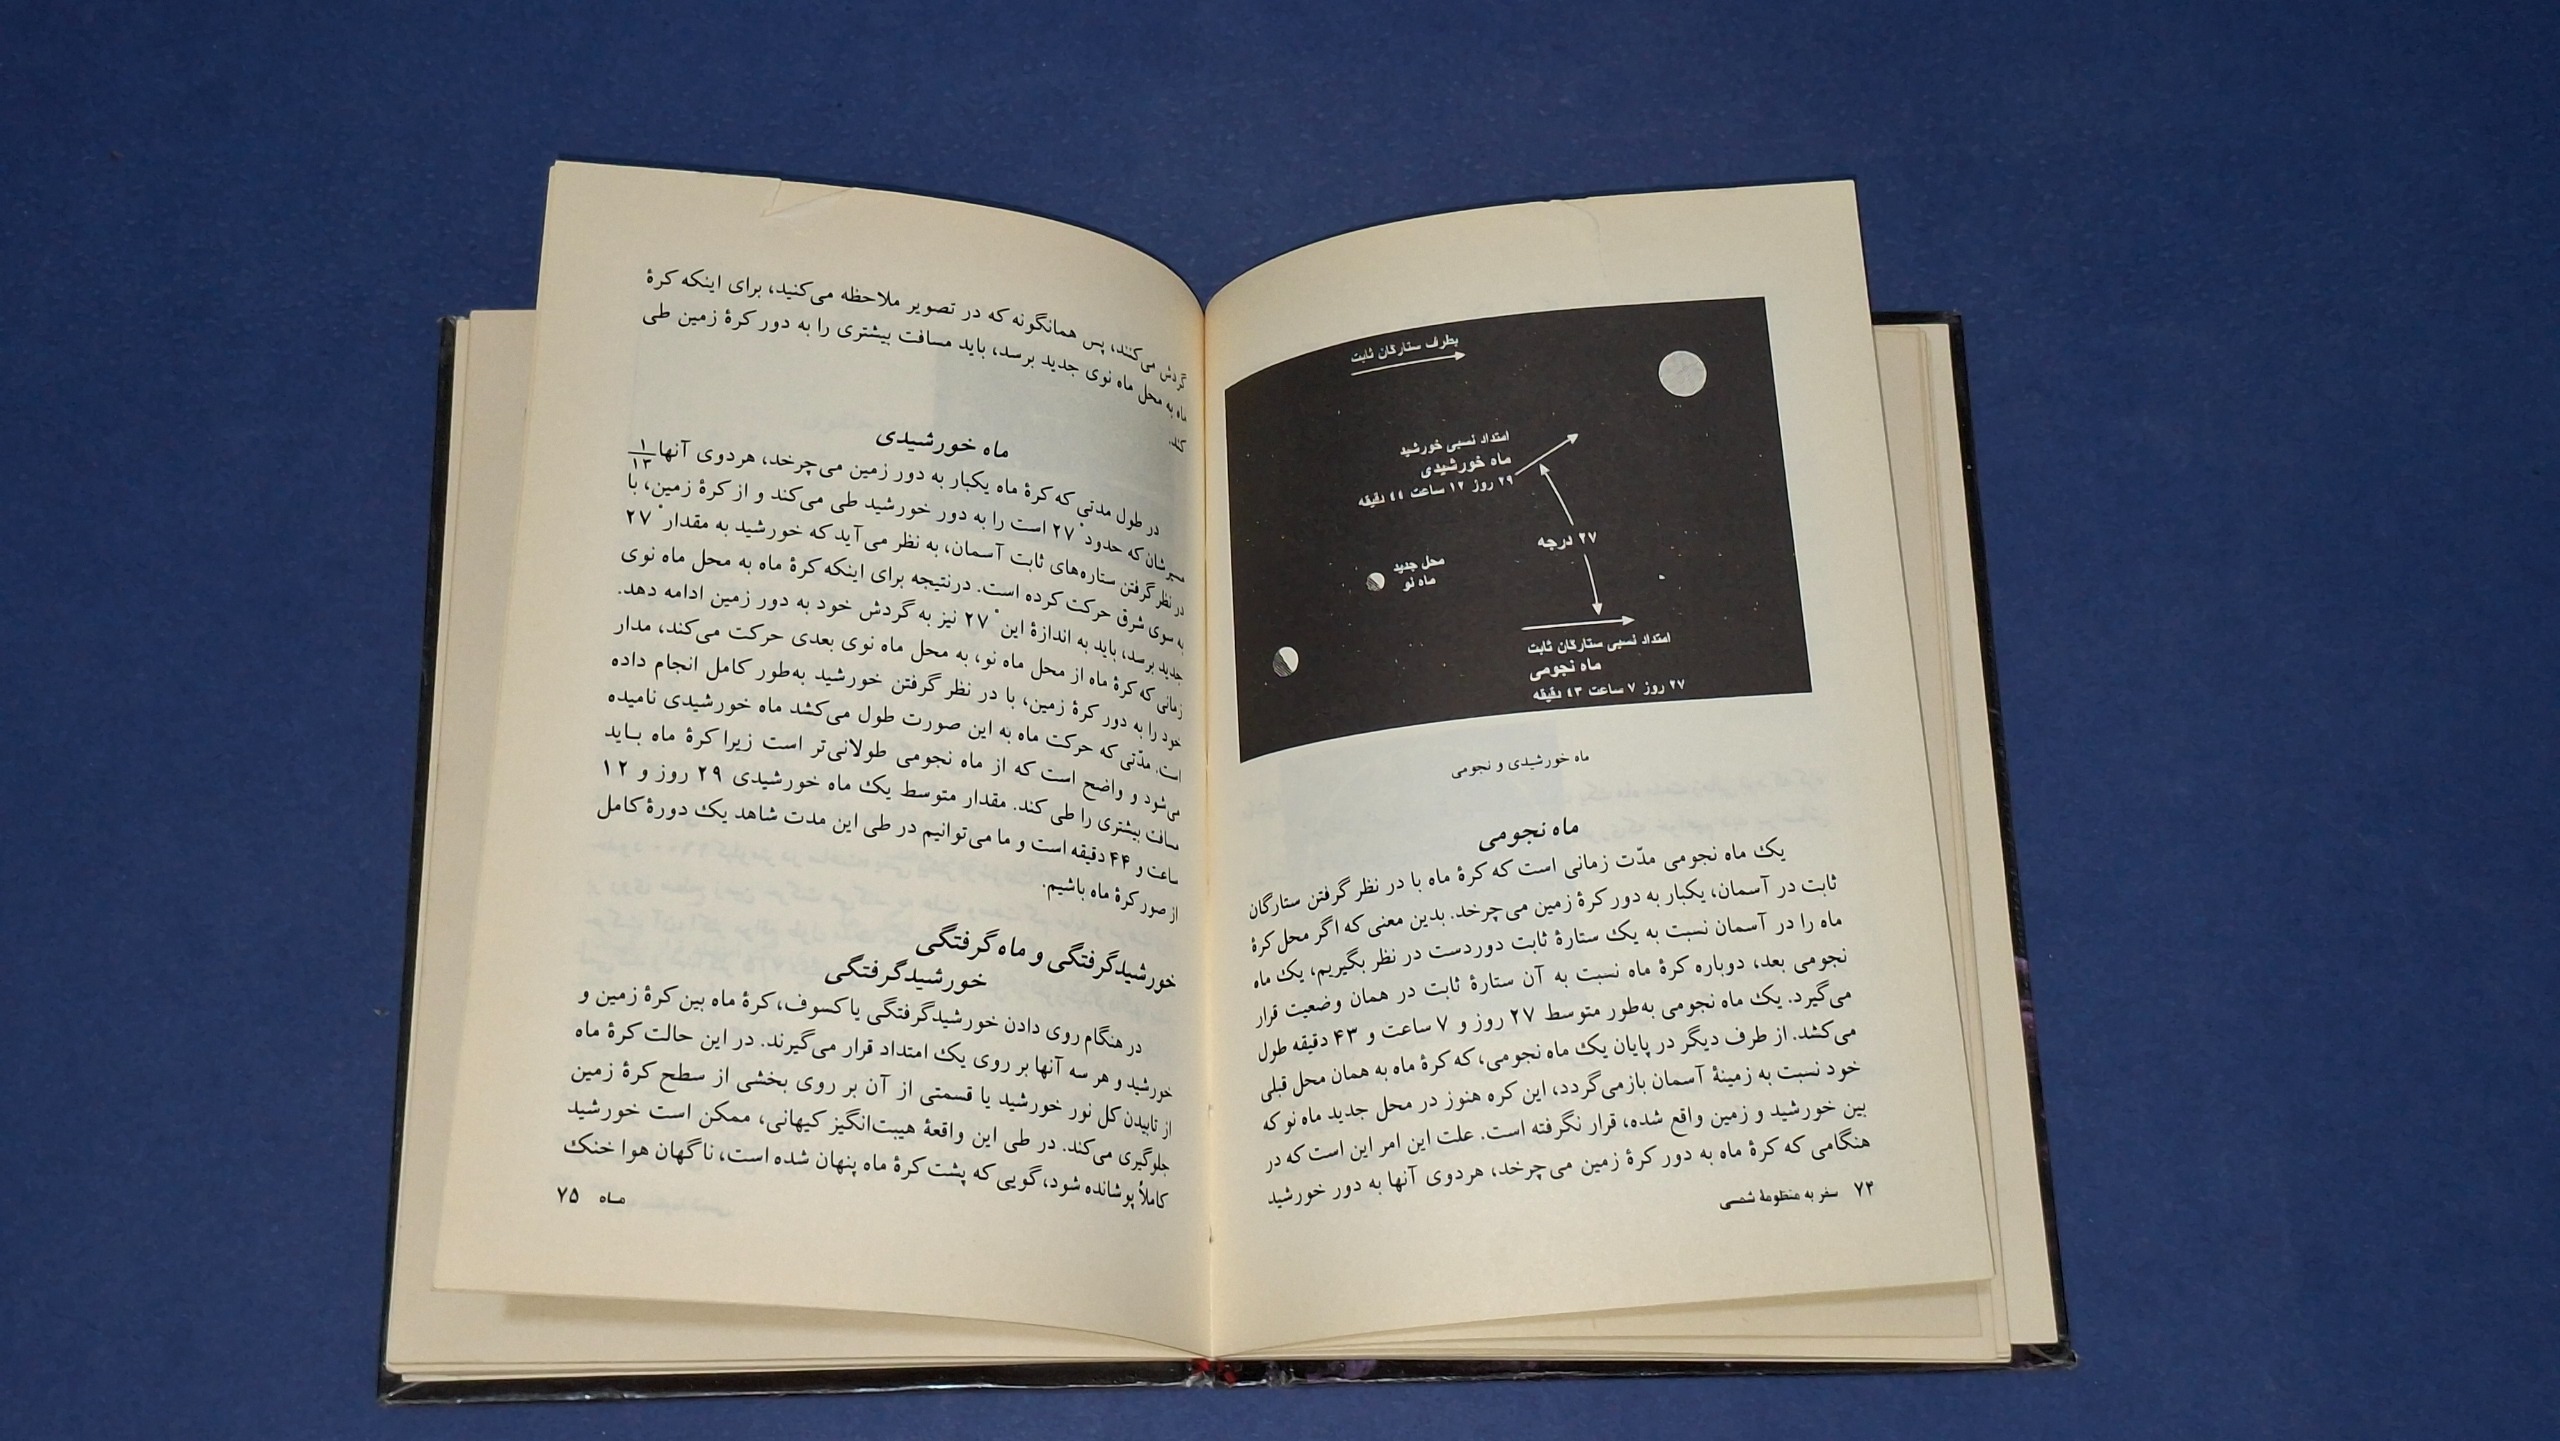 بطرف ستارگان ثابت
امتداد نسبی خورشید
ماه خورشیدی
۲۹ روز ۱۲ ساعت ٤٤ دقیقه
۲۷ درجه
محل جدید
ماه نو
امتداد نسبی ستارگان ثابت
ماه نجومی
۲۷ روز ۷ ساعت ٤۳ دقیقه
ماه خورشیدی و نجومی
ماه نجومی
یک ماه نجومی مدّت زمانی است که کرهٔ ماه با در نظر گرفتن ستارگان
ثابت در آسمان، یکبار به دور کرهٔ زمین می‌چرخد. بدین معنی که اگر محل کرهٔ
ماه را در آسمان نسبت به یک ستارهٔ ثابت دوردست در نظر بگیریم، یک ماه
نجومی بعد، دوباره کرهٔ ماه نسبت به آن ستارهٔ ثابت در همان وضعیت قرار
می‌گیرد. یک ماه نجومی به‌طور متوسط ۲۷ روز و ۷ ساعت و ۴۳ دقیقه طول
می‌کشد. از طرف دیگر در پایان یک ماه نجومی، که کرهٔ ماه به همان محل قبلی
خود نسبت به زمینهٔ آسمان بازمی‌گردد، این کره هنوز در محل جدید ماه نو که
بین خورشید و زمین واقع شده، قرار نگرفته است. علت این امر این است که در
هنگامی که کرهٔ ماه به دور کرهٔ زمین می‌چرخد، هردوی آنها به دور خورشید
۷۴ سفر به منظومهٔ شمسی
گردش می‌کنند، پس همانگونه که در تصویر ملاحظه می‌کنید، برای اینکه کرهٔ
ماه به محل ماه نوی جدید برسد، باید مسافت بیشتری را به دور کرهٔ زمین طی
کند.
ماه خورشیدی
در طول مدتی که کرهٔ ماه یکبار به دور زمین می‌چرخد، هردوی آنها ۱/۱۳
مسیرشان که حدود ۲۷° است را به دور خورشید طی می‌کند و از کرهٔ زمین، با
در نظر گرفتن ستاره‌های ثابت آسمان، به نظر می‌آید که خورشید به مقدار ۲۷°
به سوی شرق حرکت کرده است. درنتیجه برای اینکه کرهٔ ماه به محل ماه نوی
جدید برسد، باید به اندازهٔ این ۲۷° نیز به گردش خود به دور زمین ادامه دهد.
زمانی که کرهٔ ماه از محل ماه نو، به محل ماه نوی بعدی حرکت می‌کند، مدار
خود را به دور کرهٔ زمین، با در نظر گرفتن خورشید به‌طور کامل انجام داده
است. مدّتی که حرکت ماه به این صورت طول می‌کشد ماه خورشیدی نامیده
می‌شود و واضح است که از ماه نجومی طولانی‌تر است زیرا کرهٔ ماه باید
مسافت بیشتری را طی کند. مقدار متوسط یک ماه خورشیدی ۲۹ روز و ۱۲
ساعت و ۴۴ دقیقه است و ما می‌توانیم در طی این مدت شاهد یک دورهٔ کامل
از صور کرهٔ ماه باشیم.
خورشیدگرفتگی و ماه گرفتگی
خورشیدگرفتگی
در هنگام روی دادن خورشیدگرفتگی یا کسوف، کرهٔ ماه بین کرهٔ زمین و
خورشید و هر سه آنها بر روی یک امتداد قرار می‌گیرند. در این حالت کرهٔ ماه
از تابیدن کل نور خورشید یا قسمتی از آن بر روی بخشی از سطح کرهٔ زمین
جلوگیری می‌کند. در طی این واقعهٔ هیبت‌انگیز کیهانی، ممکن است خورشید
کاملاً پوشانده شود، گویی که پشت کرهٔ ماه پنهان شده است، ناگهان هوا خنک
ماه ۷۵